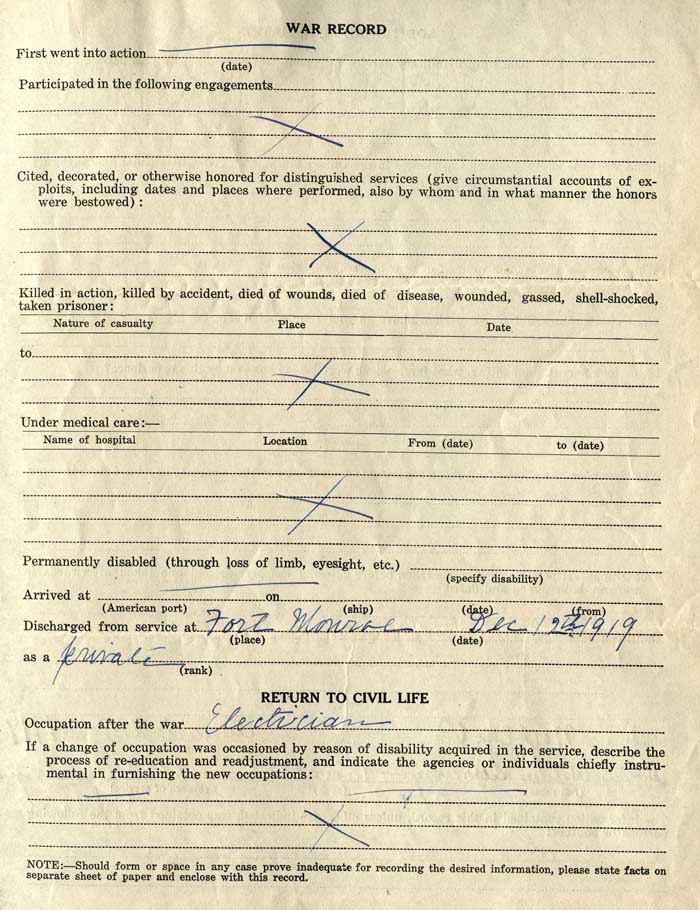 WAR RECORD
First went into action
(date)
Participated in the following engagements
Cited, decorated, or otherwise honored for distinguished services (give circumstantial accounts of ex-
ploits, including dates and places where performed, also by whom and in what manner the honors
were bestowed) :
Killed in action, killed by accident, died of wounds, died of disease, wounded, gassed, shell-shocked,
taken prisoner:
Nature of casualty Place Date
to
Under medical care:—
Name of hospital Location From (date) to (date)
Permanently disabled (through loss of limb, eyesight, etc.)
(specify disability)
Arrived at on
(American port) (ship) (date) (from)
Discharged from service at Fort Monroe Dec 12th 1919
(place) (date)
as a private
(rank)
RETURN TO CIVIL LIFE
Occupation after the war Electrician
If a change of occupation was occasioned by reason of disability acquired in the service, describe the
process of re-education and readjustment, and indicate the agencies or individuals chiefly instru-
mental in furnishing the new occupations:
NOTE:—Should form or space in any case prove inadequate for recording the desired information, please state facts on
separate sheet of paper and enclose with this record.